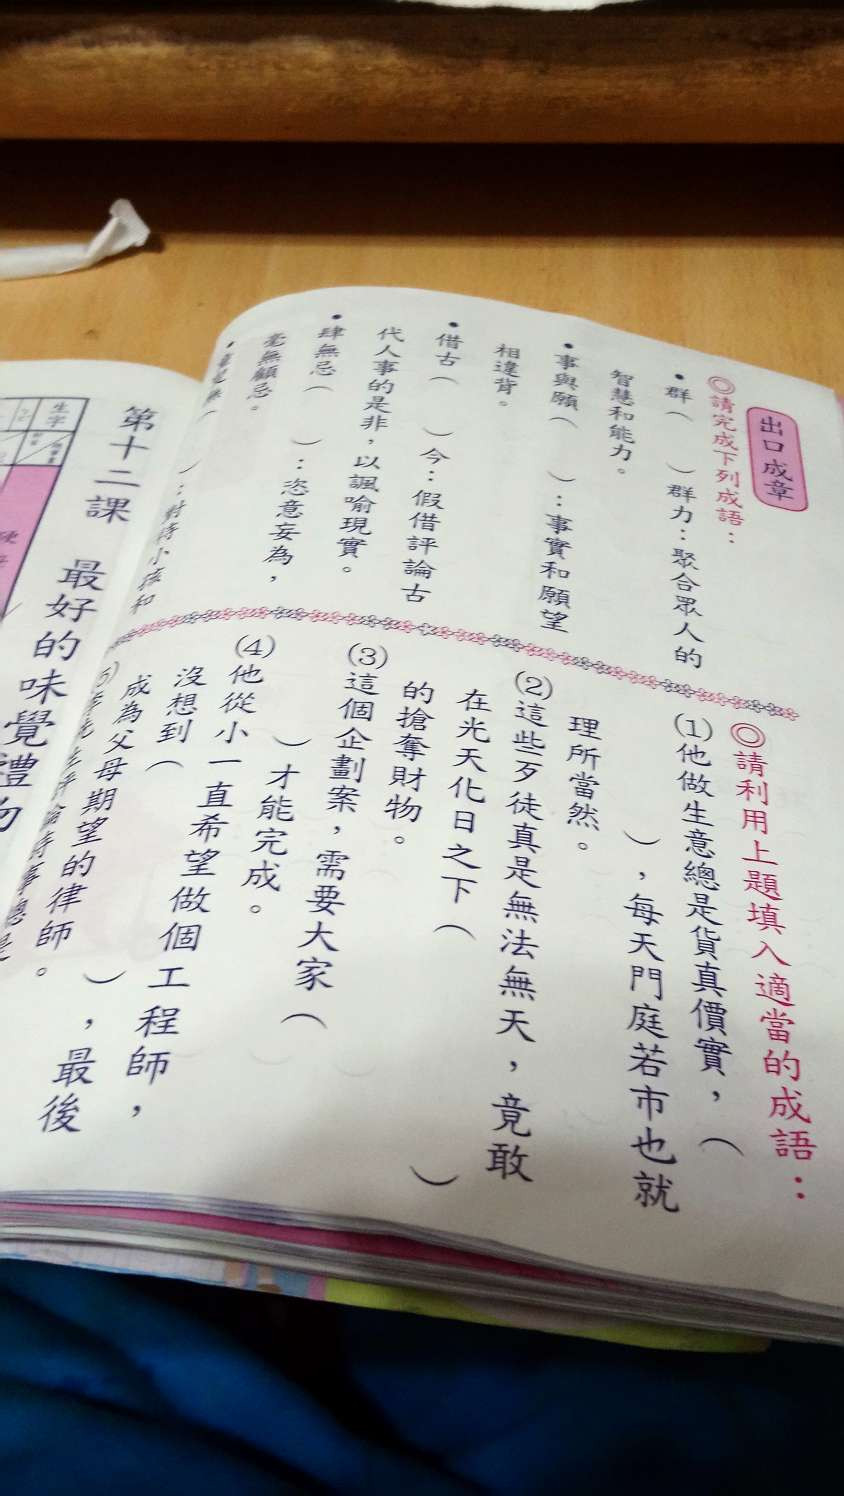 出口成章
◎請完成下列成語：
•群（　）群力：聚合眾人的
智慧和能力。
•事與願（　）：事實和願望
相違背。
•借古（　）今：假借評論古
代人事的是非，以諷喻現實。
•肆無忌（　）：恣意妄為，
毫無顧忌。
無（　）：對待小孩和
◎請利用上題填入適當的成語：
(1)他做生意總是貨真價實，（
），每天門庭若市也就
理所當然。
(2)這些歹徒真是無法無天，竟敢
在光天化日之下（　）
的搶奪財物。
(3)這個企劃案，需要大家（
）才能完成。
(4)他從小一直希望做個工程師，
沒想到（　），最後
成為父母期望的律師。
(5)
生評論時事總是
第十二課　最好的味覺禮物
生字